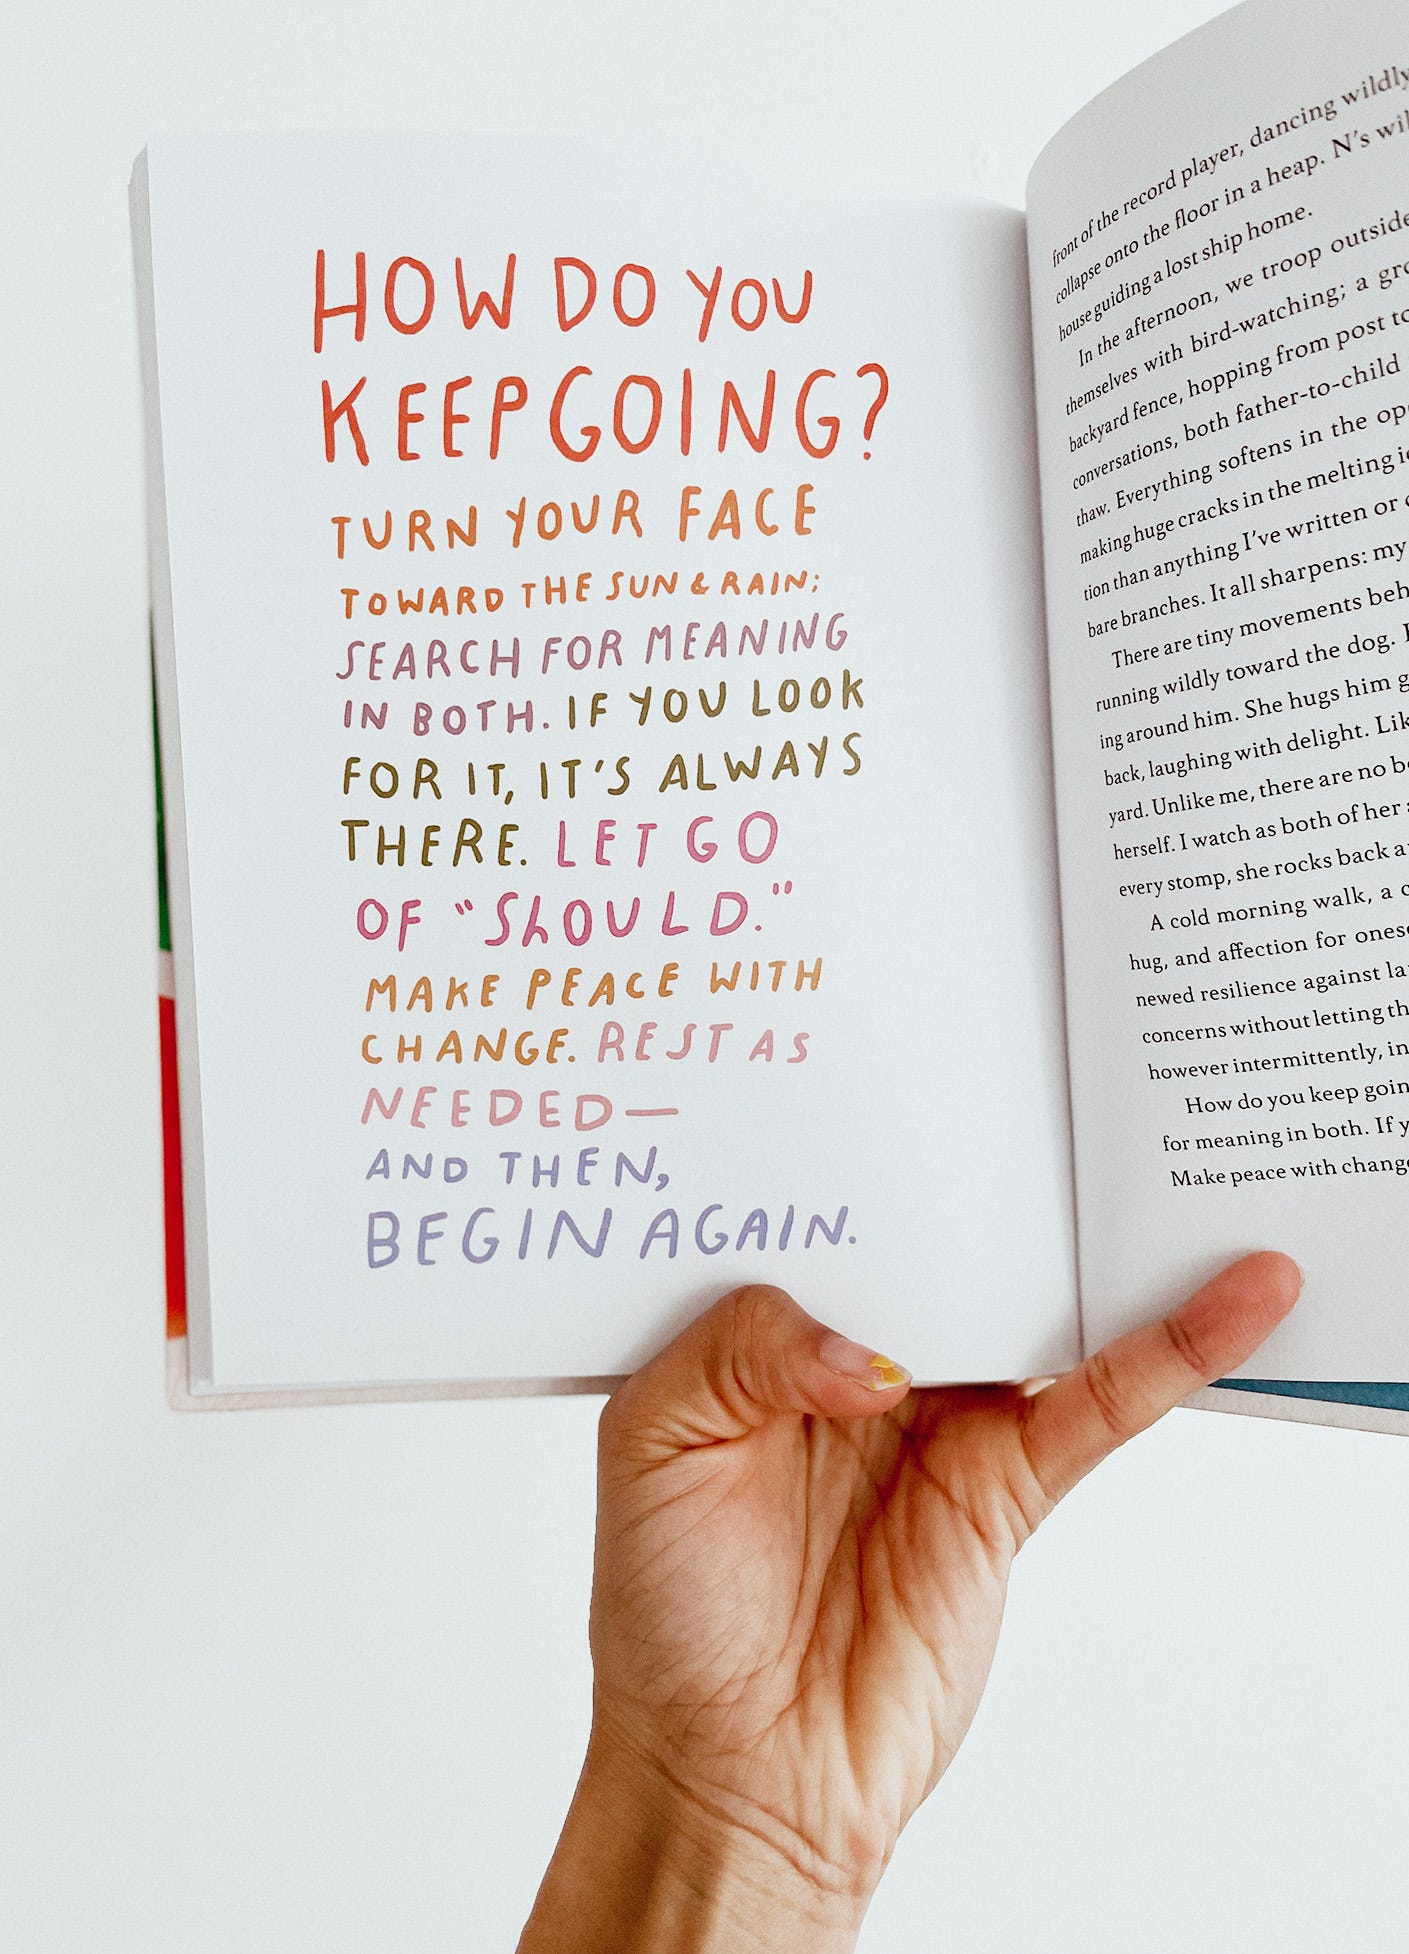 HOW DO YOU
KEEP GOING?
TURN YOUR FACE
TOWARD THE SUN & RAIN;
SEARCH FOR MEANING
IN BOTH. IF YOU LOOK
FOR IT, IT'S ALWAYS
THERE. LET GO
OF "ShOULD."
MAKE PEACE WITH
CHANGE. REST AS
NEEDED—
AND THEN,
BEGIN AGAIN.
front of the record player, dancing wildly
collapse onto the floor in a heap. N's
house guiding a lost ship home.
In the afternoon, we troop outside
themselves with bird-watching; a
backyard fence, hopping from post to
conversations, both father-to-child
thaw. Everything softens in the
making huge cracks in the melting
tion than anything I've written or
bare branches. It all sharpens: my
There are tiny movements
running wildly toward the dog.
ing around him. She hugs him
back, laughing with delight.
yard. Unlike me, there are no
herself. I watch as both of her
every stomp, she rocks back
A cold morning walk, a
hug, and affection for
newed resilience against
concerns without letting
however intermittently, in
How do you keep
for meaning in both. If
Make peace with